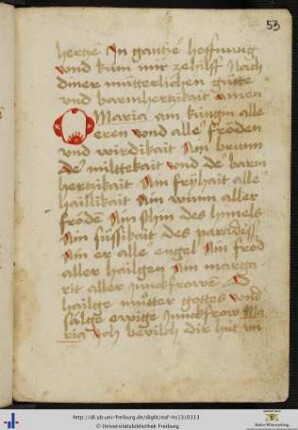 53
hertze Jn gantze hoffnung
vnd kum mir ze hilff Nach
diner mütterlichen gütte
vnd barmhertzikait amen
O Maria ain küngin alle
eren vnd alle fröden
vnd wirdikait Ain brunn
de miltekait vnd de barm
hertzikait Ain fryhait alle
hailikait Ain wunn aller
fröde Ain schin des himels
Ain süssikait des paradiss
Ain er alle engel Ain fröd
aller hailgen Ain marga
rit aller junckfrowe O
hailge muoter gottes vnd
sälge ewige junckfrow Ma
ria ich bevilch dir hüt vn
http://dl.ub.uni-freiburg.de/diglit/euf-hs23/0113
© Universitätsbibliothek Freiburg
Baden-Württemberg